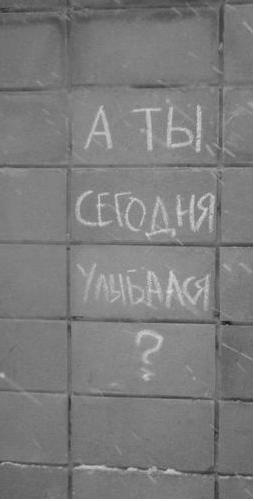 А ТЫ
СЕГОДНЯ
УЛЫБАЛСЯ
?